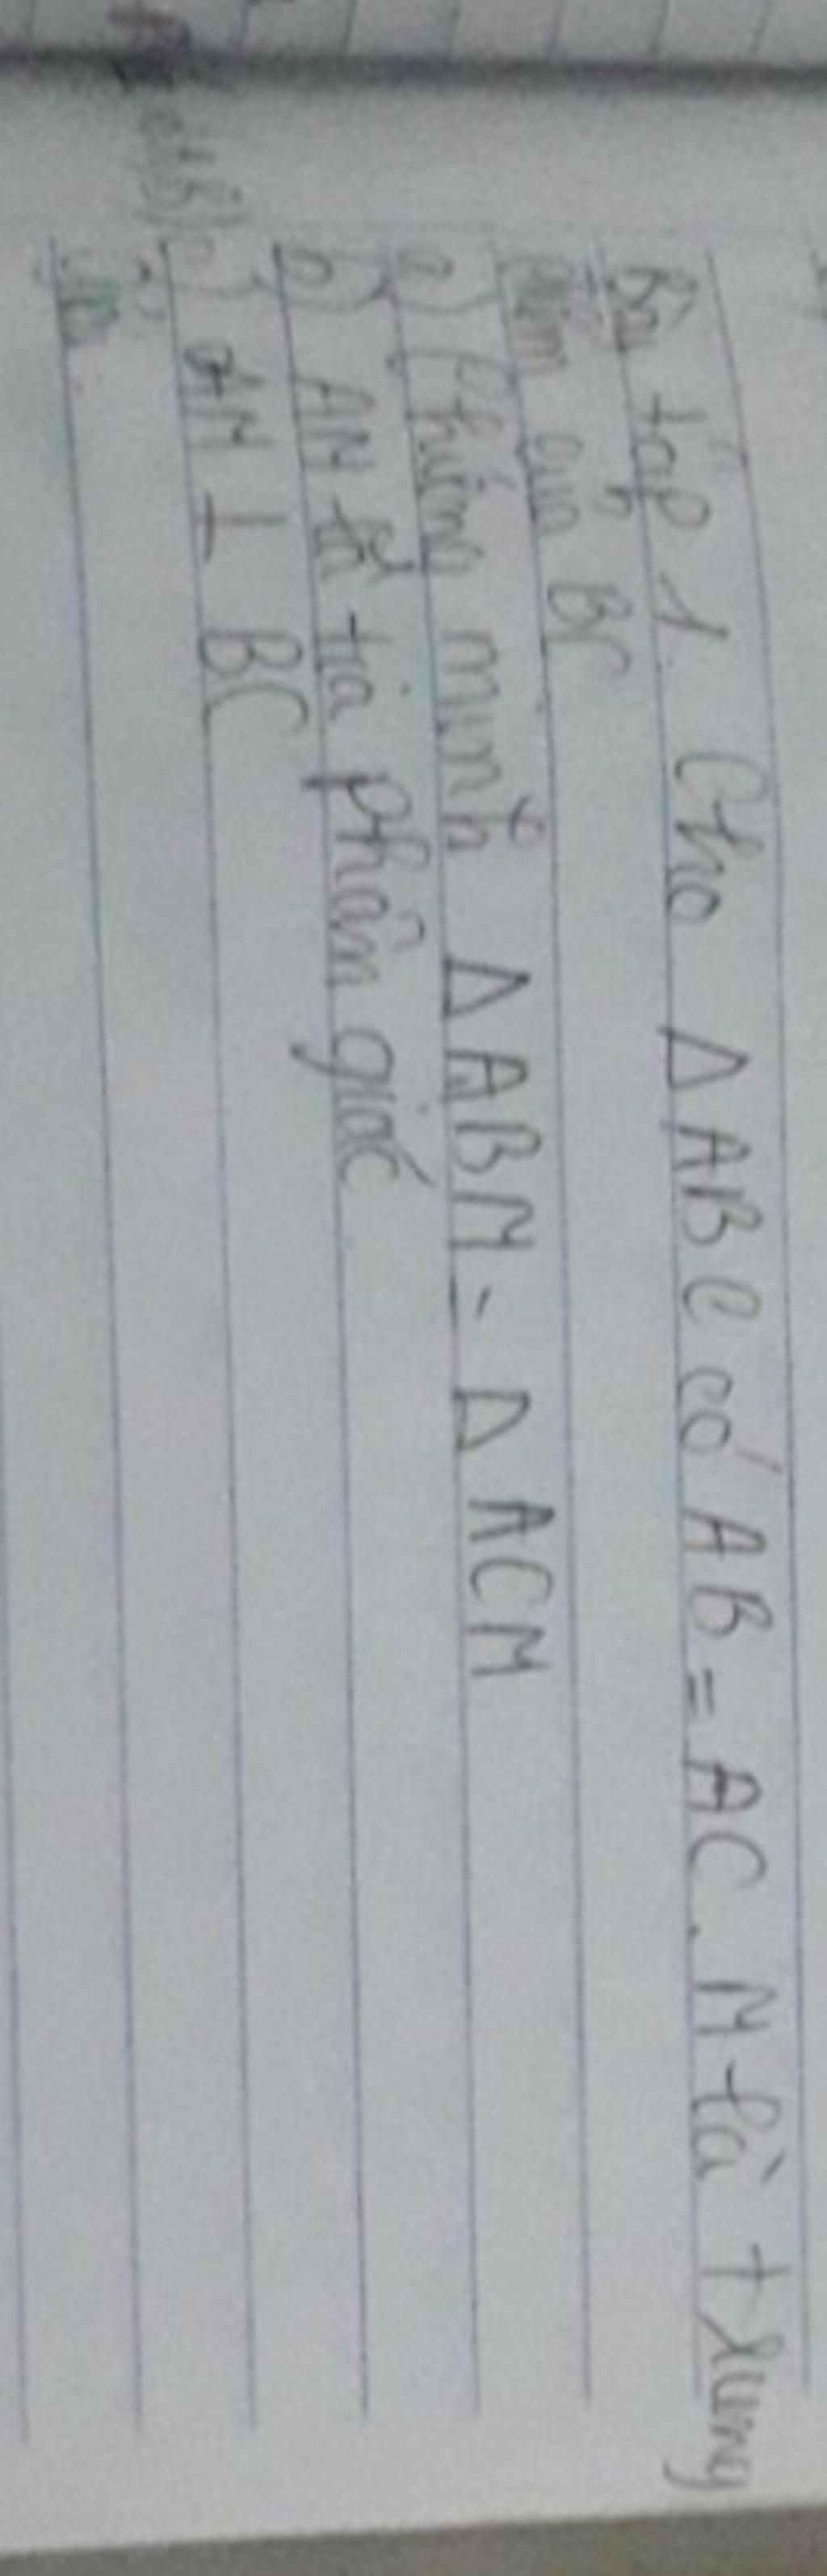 Bài tập 1. Cho Δ ABC có AB = AC. M là trung
điểm của BC
a) Chứng minh Δ ABM = Δ ACM
b) AM là tia phân giác
c) AM ⊥ BC